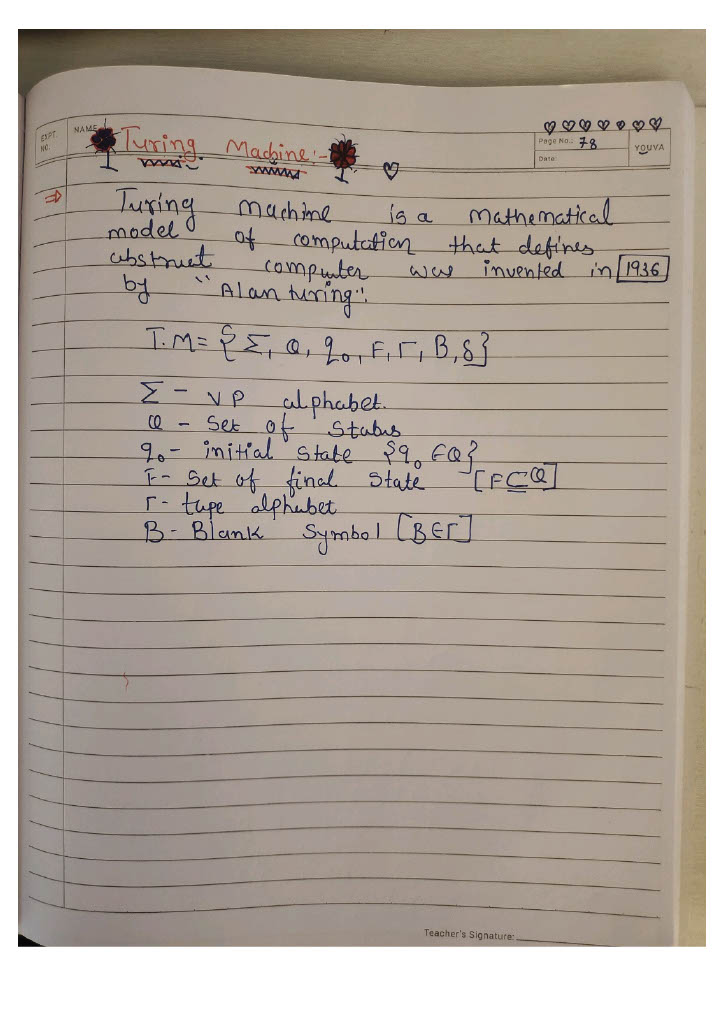 EXPT. NO.
NAME
Page No.: 78
Date:
YOUVA
Turing Machine :-
⇒ Turing machine is a mathematical
model of computation that defines
abstruct computer was invented in 1936
by "Alan turing".
T.M = {Σ, Q, q₀, F, Γ, B, δ}
Σ - VP alphabet.
Q - Set of Status
q₀ - initial state {q₀ ∈ Q}
F - Set of final State [F ⊆ Q]
Γ - tape alphabet
B - Blank Symbol [B∈Γ]
Teacher's Signature: